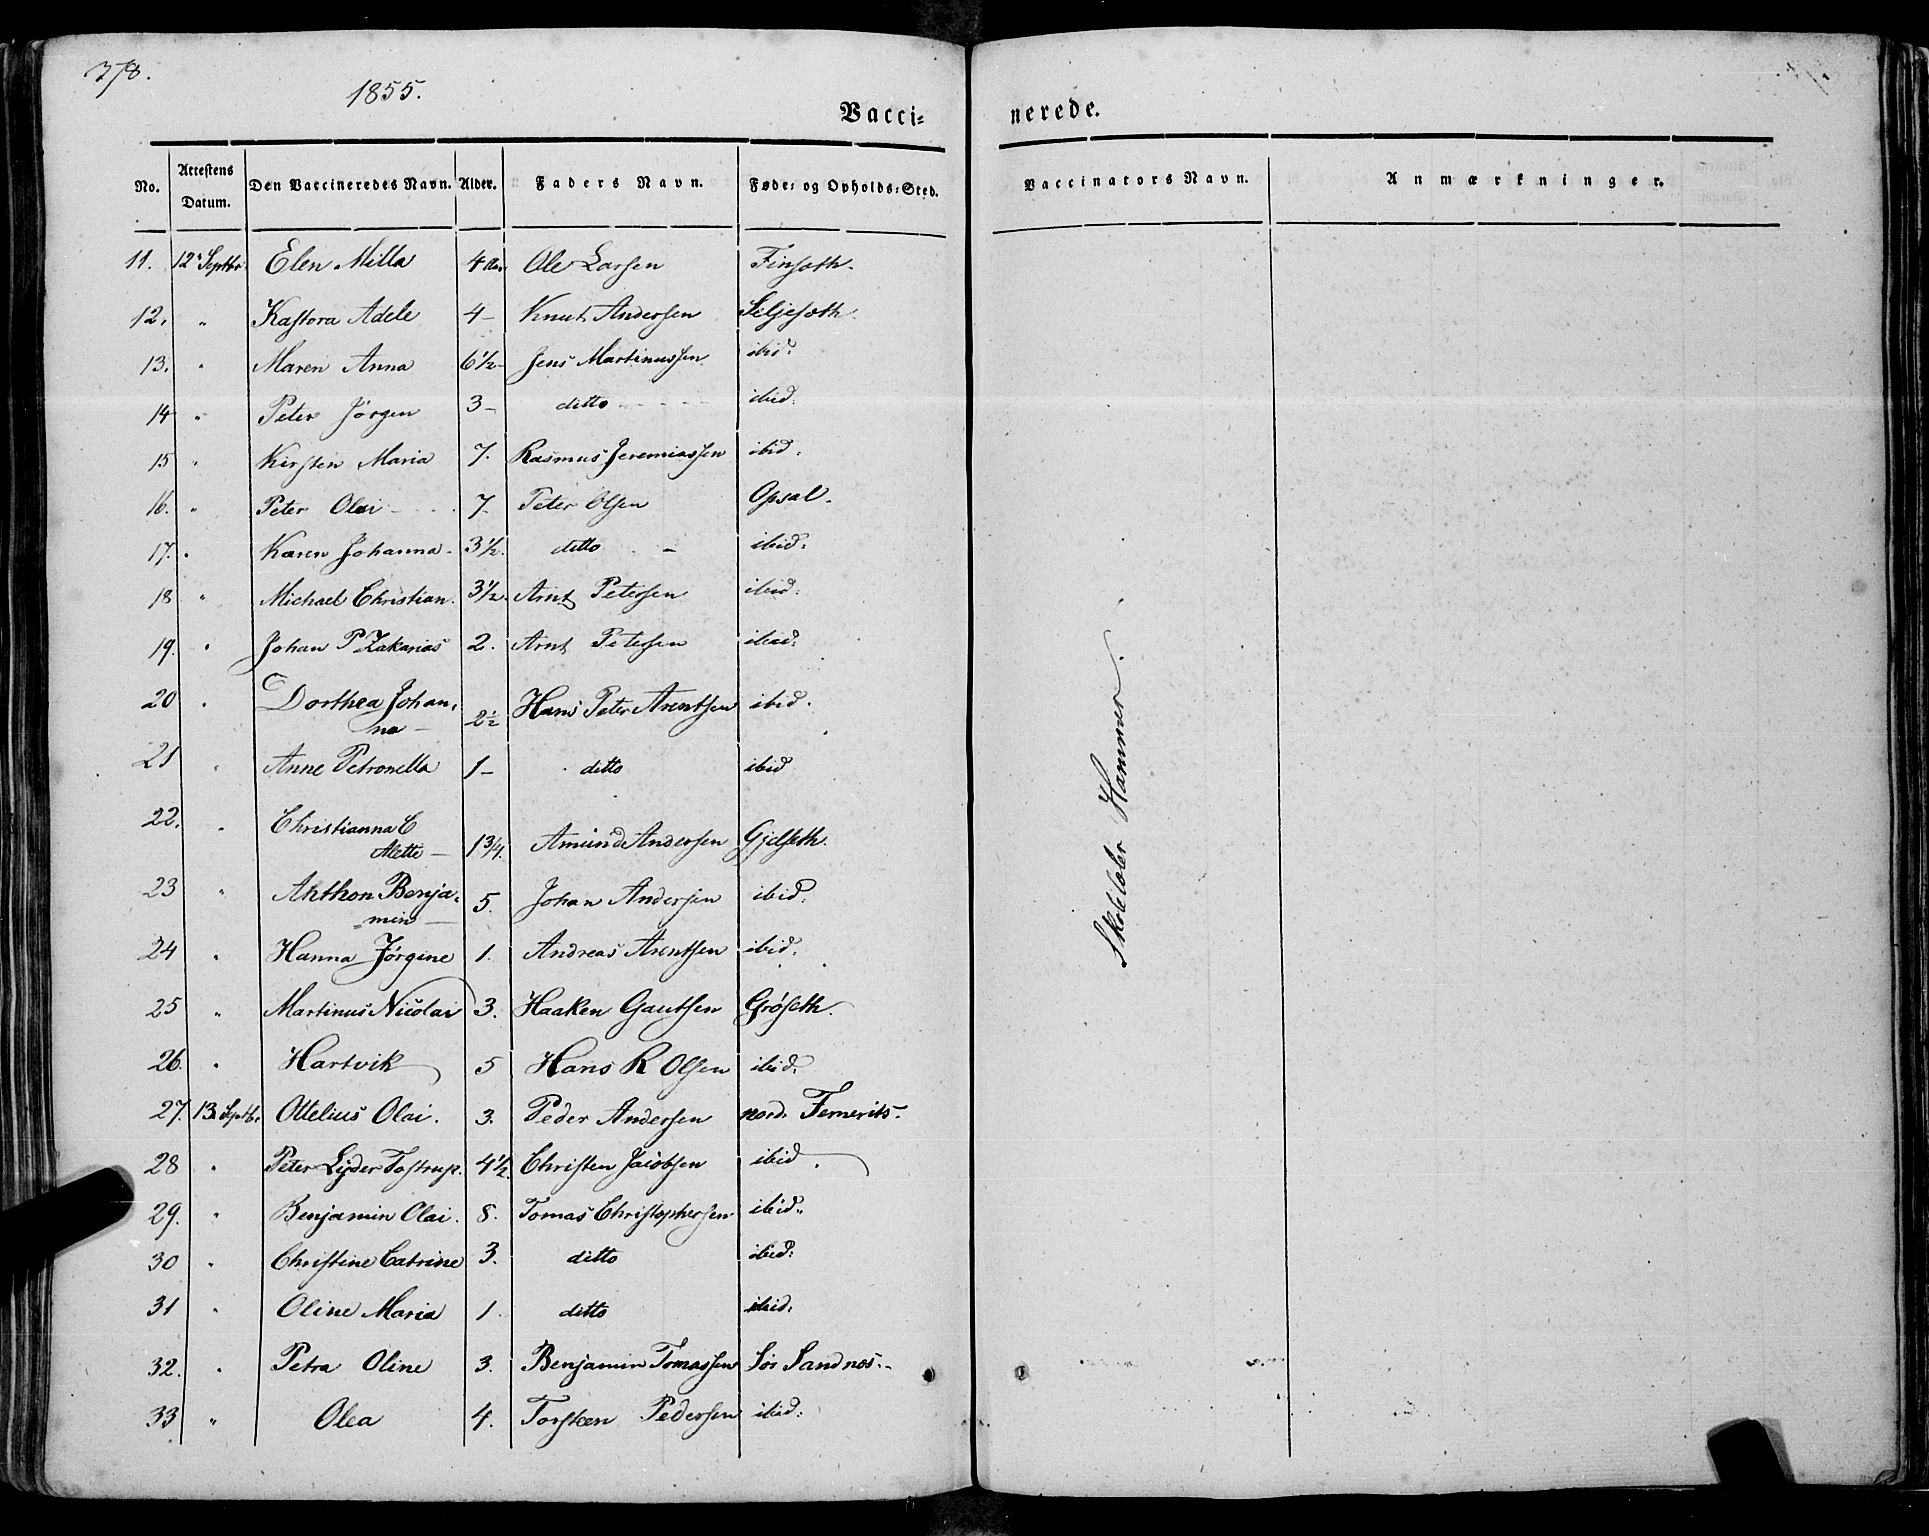 378.
1855.
Vacci=
nerede.
No. Attestens Datum. Den Vaccineredes Navn. Alder. Faders Navn. Føde= og Opholds=Sted. Vaccinators Navn. Anmærkninger.
11. 12 Septbr Elen Milla 4 Ole Larsen Finseth.
12. " Kastora Adele 4 - Knut Andersen Seljeseth.
13. " Maren Anna 6½ - Jens Martinussen ibid:
14 " Peter Jørgen 3 - ditto ibid:
15 " Kirsten Maria 7. Rasmus Jeremiassen ibid:
16. " Peter Olai 7 Peter Olsen Opsal.
17. " Karen Johanna - 3½. ditto - ibid:
18 " Michael Christian. 3½. Arnt Petersen ibid:
19. " Johan P Zakarias 2. Arnt Petersen ibid:
20 " Dorthea Johan=
na - 2½ Hans Peter Arentsen ibid.
21 " Anne Petronella 1 - ditto ibid
22. " Christianna C
Alette - 1¾. Amund Andersen Gjelseth.
23 " Anthon Benja=
min 5. Johan Andersen ibid:
24 " Hanna Jørgine 1. Andreas Arentsen ibid:
25 " Martinus Nicolai 3. Haaken Gautsen Grøseth.
26. " Hartvik 5 Hans R Olsen ibid.
27. 13 Septbr Ottelius Olai. 3. Peder Andersen nord. Femerits.
28 " Peter Lyder Tostrup. 4½. Christen Jacobsen ibid.
29. " Benjamin Olai. 8. Tomas Christophersen ibid:
30 " Christine Catrine 3. ditto ibid:
31 " Oline Maria 1. ditto ibid:
32. " Petra Oline 3. Benjamin Tomassen Sør Sandnes.
33 " Olea 4. Torsten Pedersen ibid:
Skoleløler Hammer.